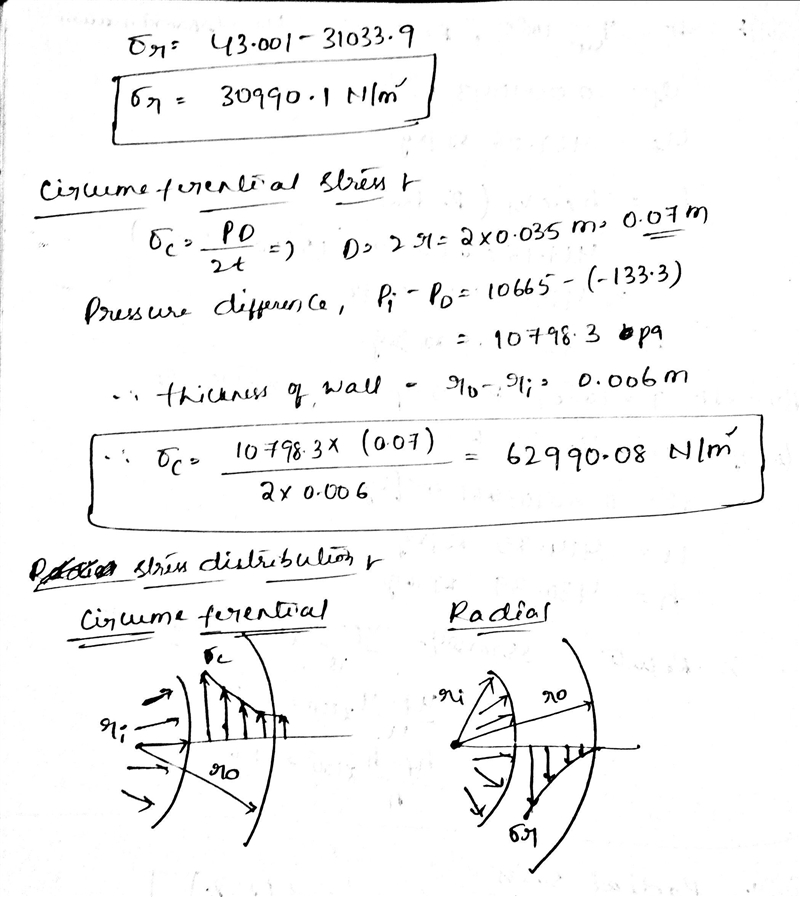 σr = 43.001 - 31033.9
σr = 30990.1 N/m²
Circumeferential stress :-
σc = PD/2t => D = 2r = 2x0.035 m = 0.07m
Pressure difference, Pi - Po = 10665 - (-133.3)
= 10798.3 pa
∴ thickness of wall = ro - ri = 0.006m
∴ σc = 10798.3 x (0.07) / 2 x 0.006 = 62990.08 N/m²
stress distribution :-
Circumeferential Radial
σc
ri
ro
ri
ro
σr